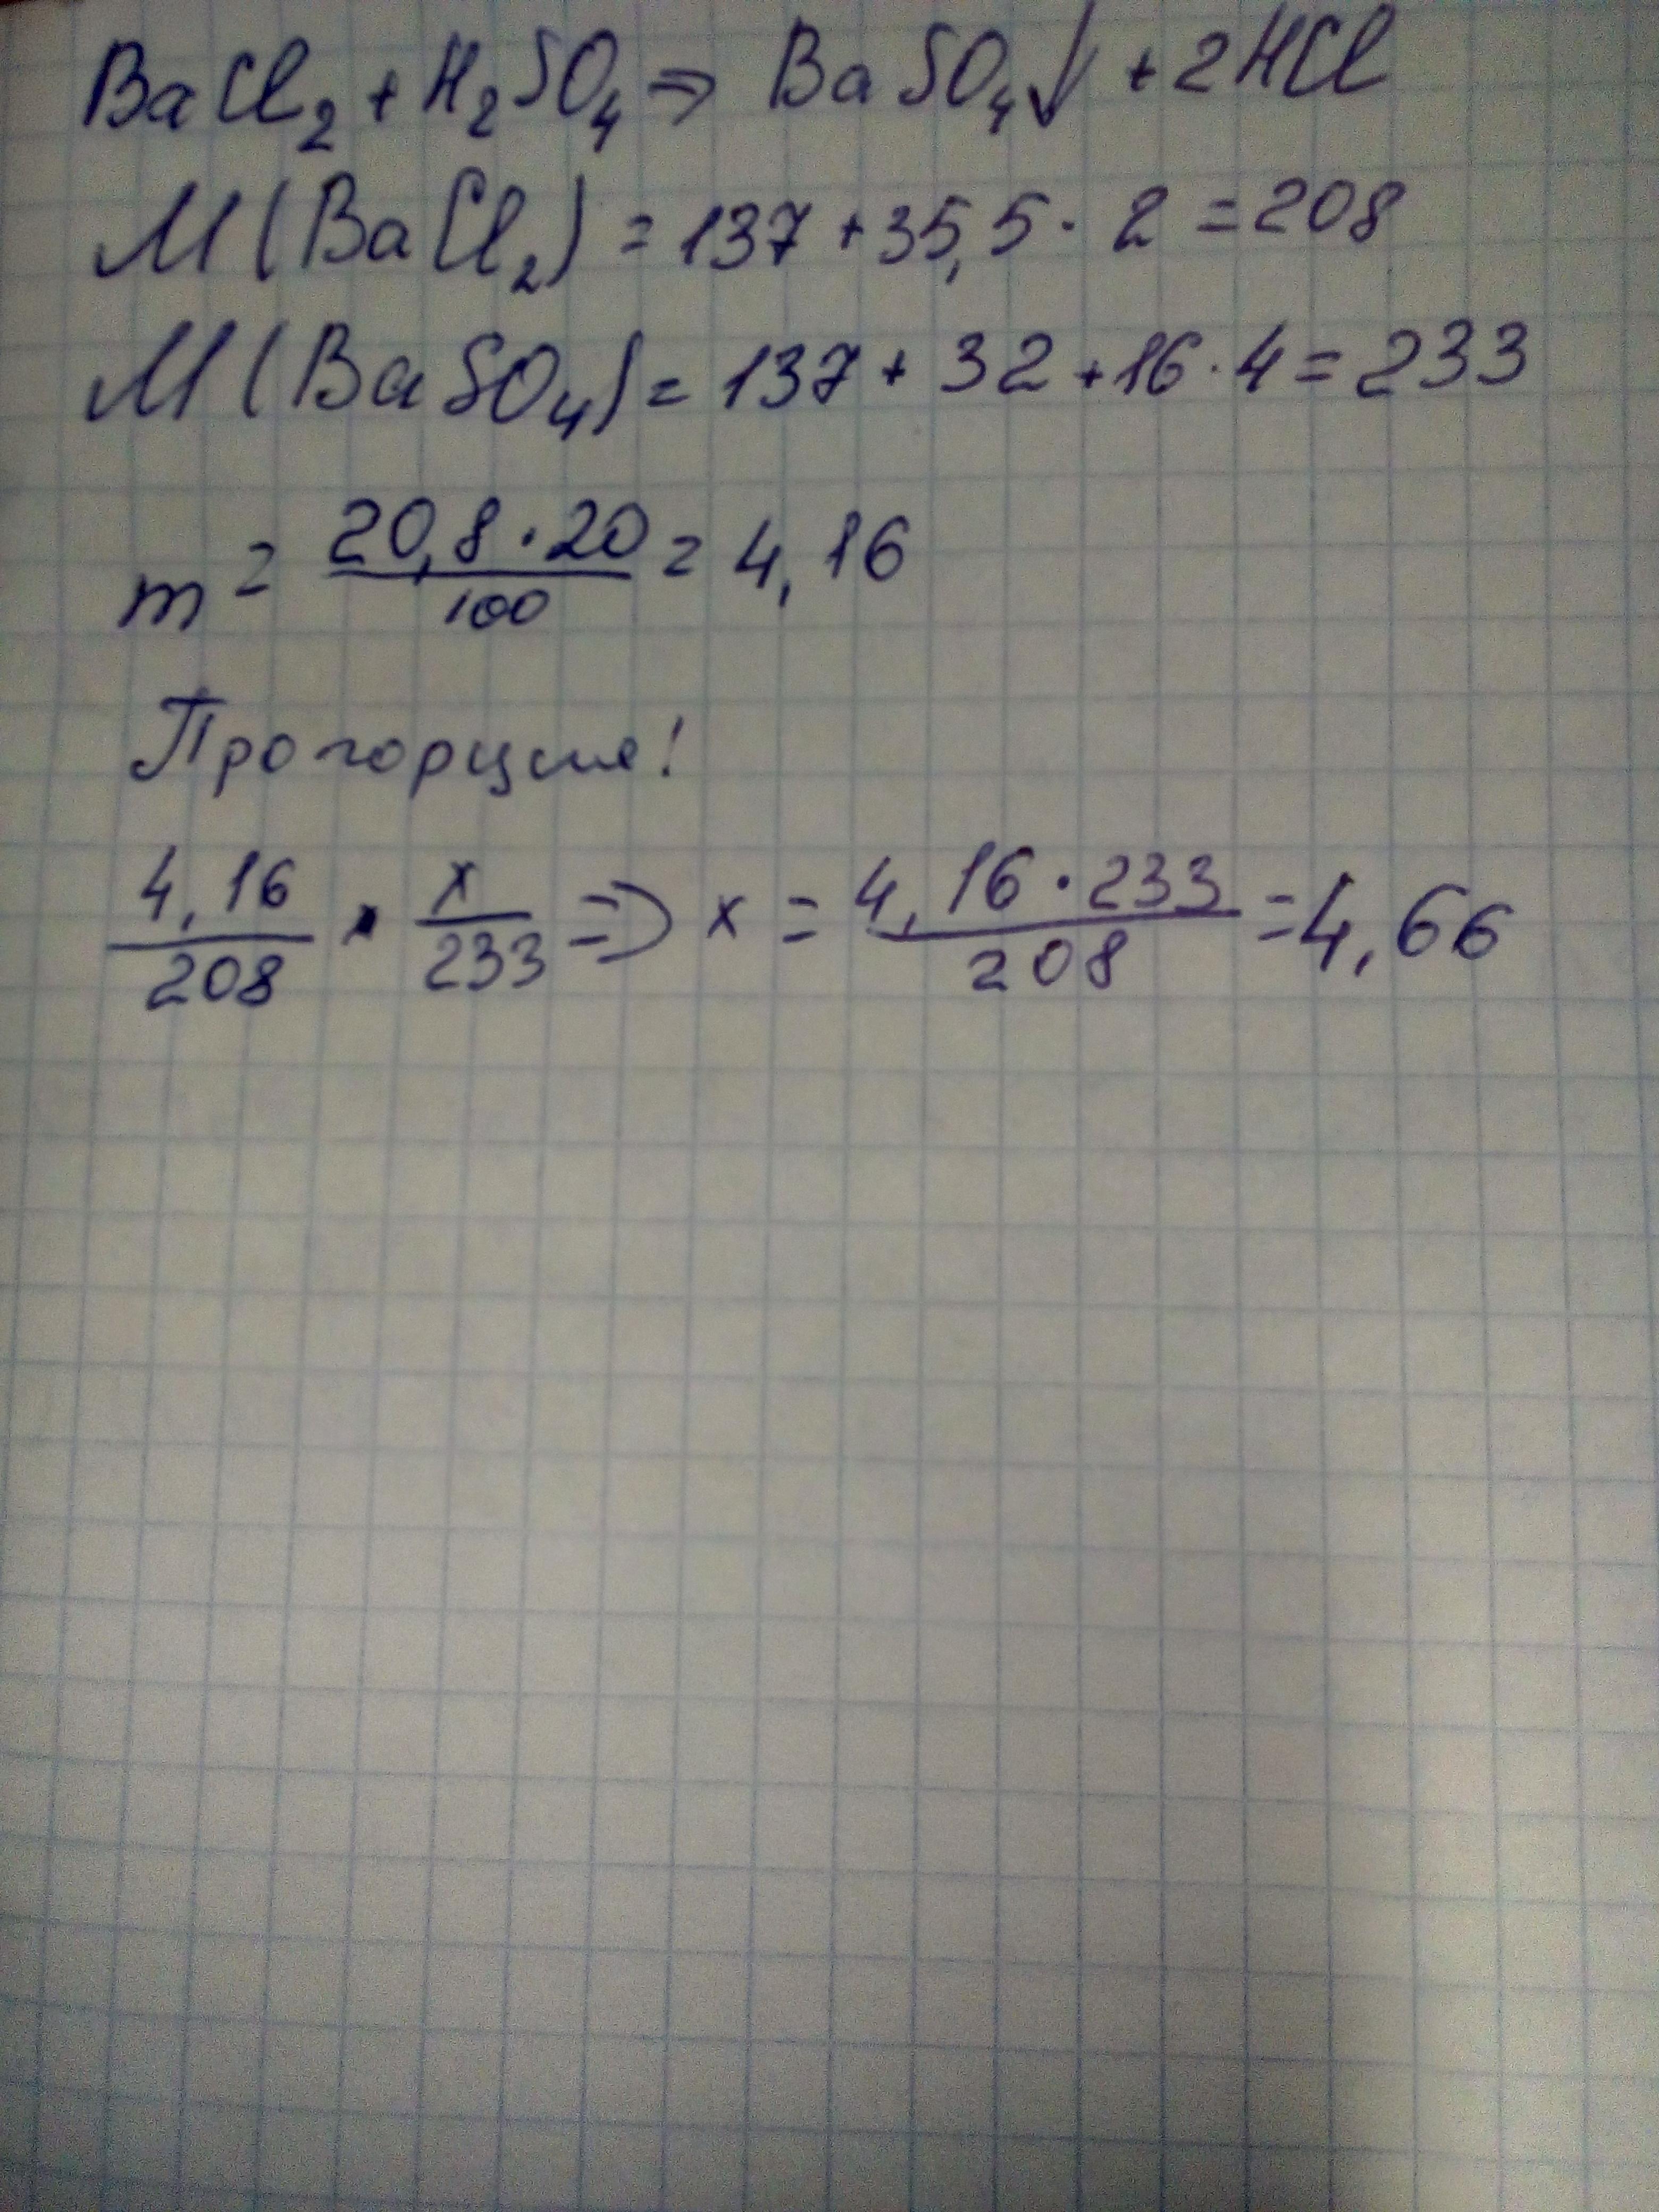 BaCl₂ + H₂SO₄ ⇒ BaSO₄↓ + 2HCl
M(BaCl₂) = 137 + 35,5 · 2 = 208
M(BaSO₄) = 137 + 32 + 16 · 4 = 233
m = 20,8 · 20 / 100 = 4,16
Пропорция!
4,16 / 208 · x / 233 ⇒ x = 4,16 · 233 / 208 = 4,66